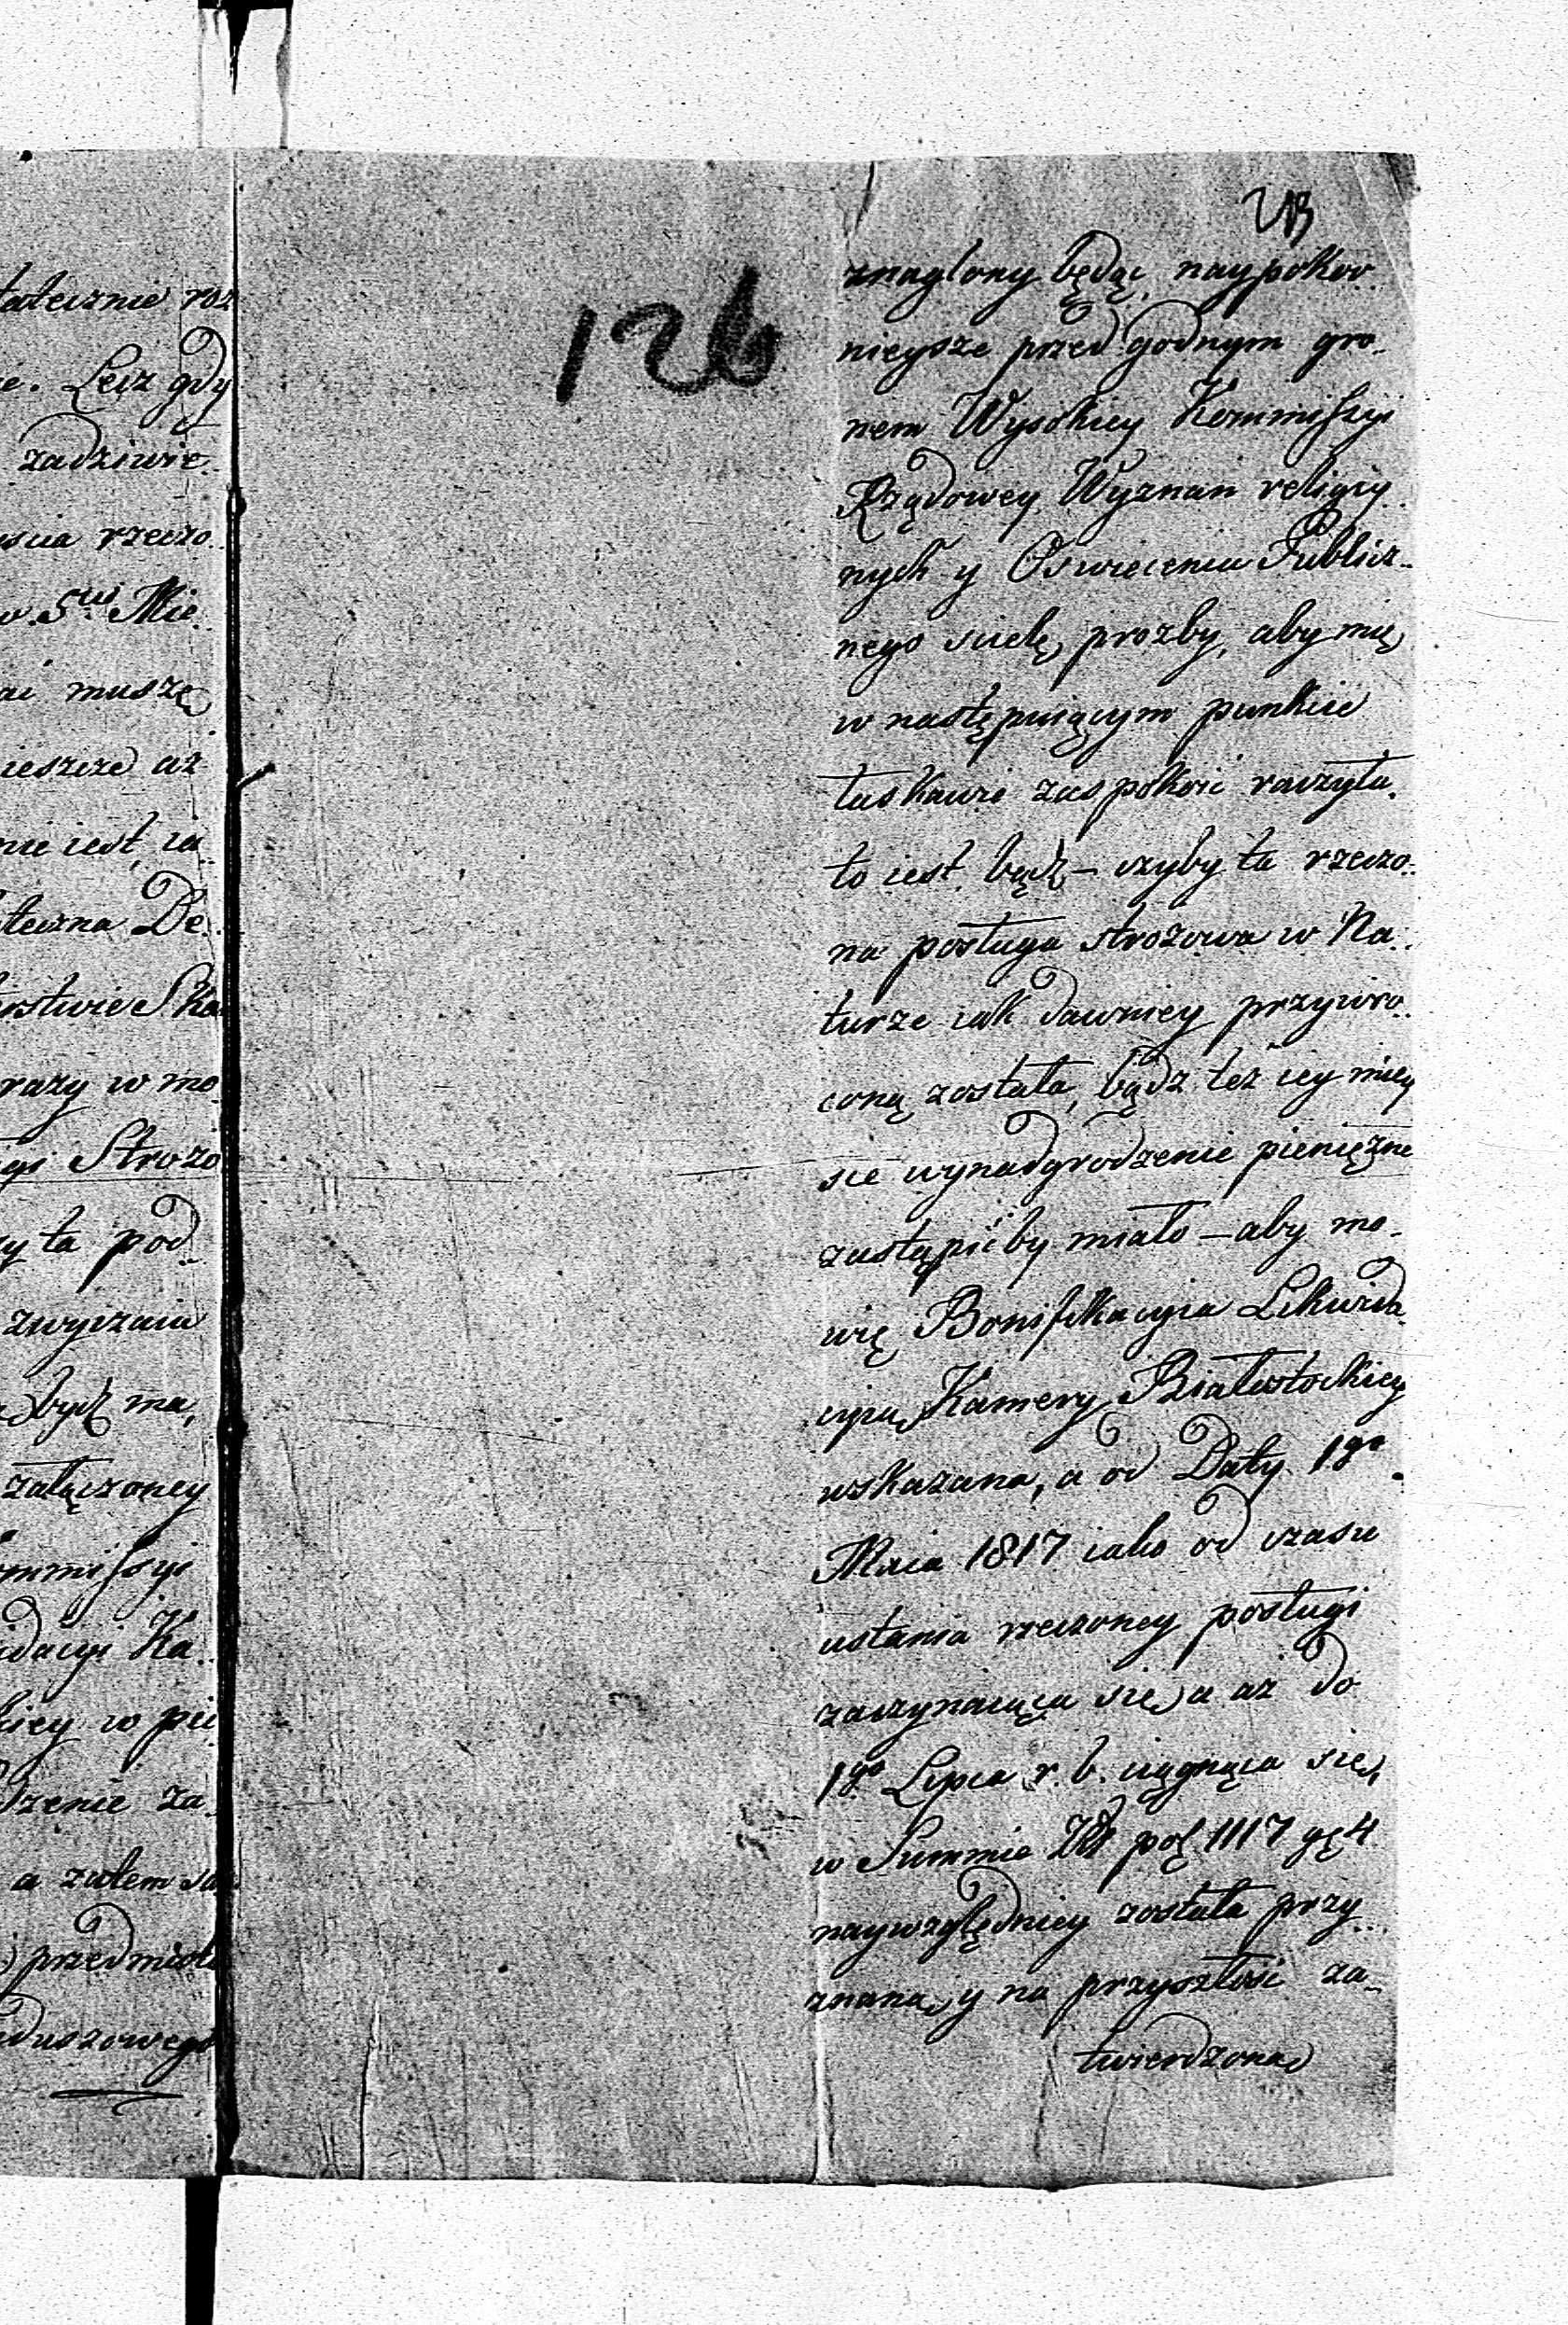 tatecznie roz
ie. Lecz gdy
zadziwie..
uscia rzeczo..
w 5ciu Mie..
ai muszę
ieszcze aż
nie iest, ia..
teczna De..
rstwie Ska
razy w mo..
gi Strożo
zy ta pod..
zwyczaiu
być ma,
załączoney
ommissyi
idacyi Ka..
kiey w pie
dzenie za..
a zatem sa
) przedmiot
duszowego
126
213
znaglony będąc, naypokor..
nieysze przed godnym gro..
nem Wysokiey Kommissyi
Rządowey Wyznań religiy..
nych y Oswiecenia Publicz..
nego scielę prozby, aby mię
w następuiącym punkcie
łaskawie zaspokoić raczyła.
to iest. bądź – czyby ta rzeczo..
na posługa strozowa w Na..
turze iak dawniey przywro..
coną została, bądz też iey miey
sce wynadgrodzenie pieniężne
zastąpićby miało – aby mo..
wię Bonifikacyia Likwida
cyią Kamery Białostockiey
wskazana, a od Daty 1go
Maia 1817 iako od czasu
ustania rzeczoney posługi
zaczynaiąca się a aż do
1go Lipca r. b. ciągnąca się,
w Summie Zł pol 1117 gr 4
naywzględniey została przy..
znana, y na przyszłość za..
twierdzona